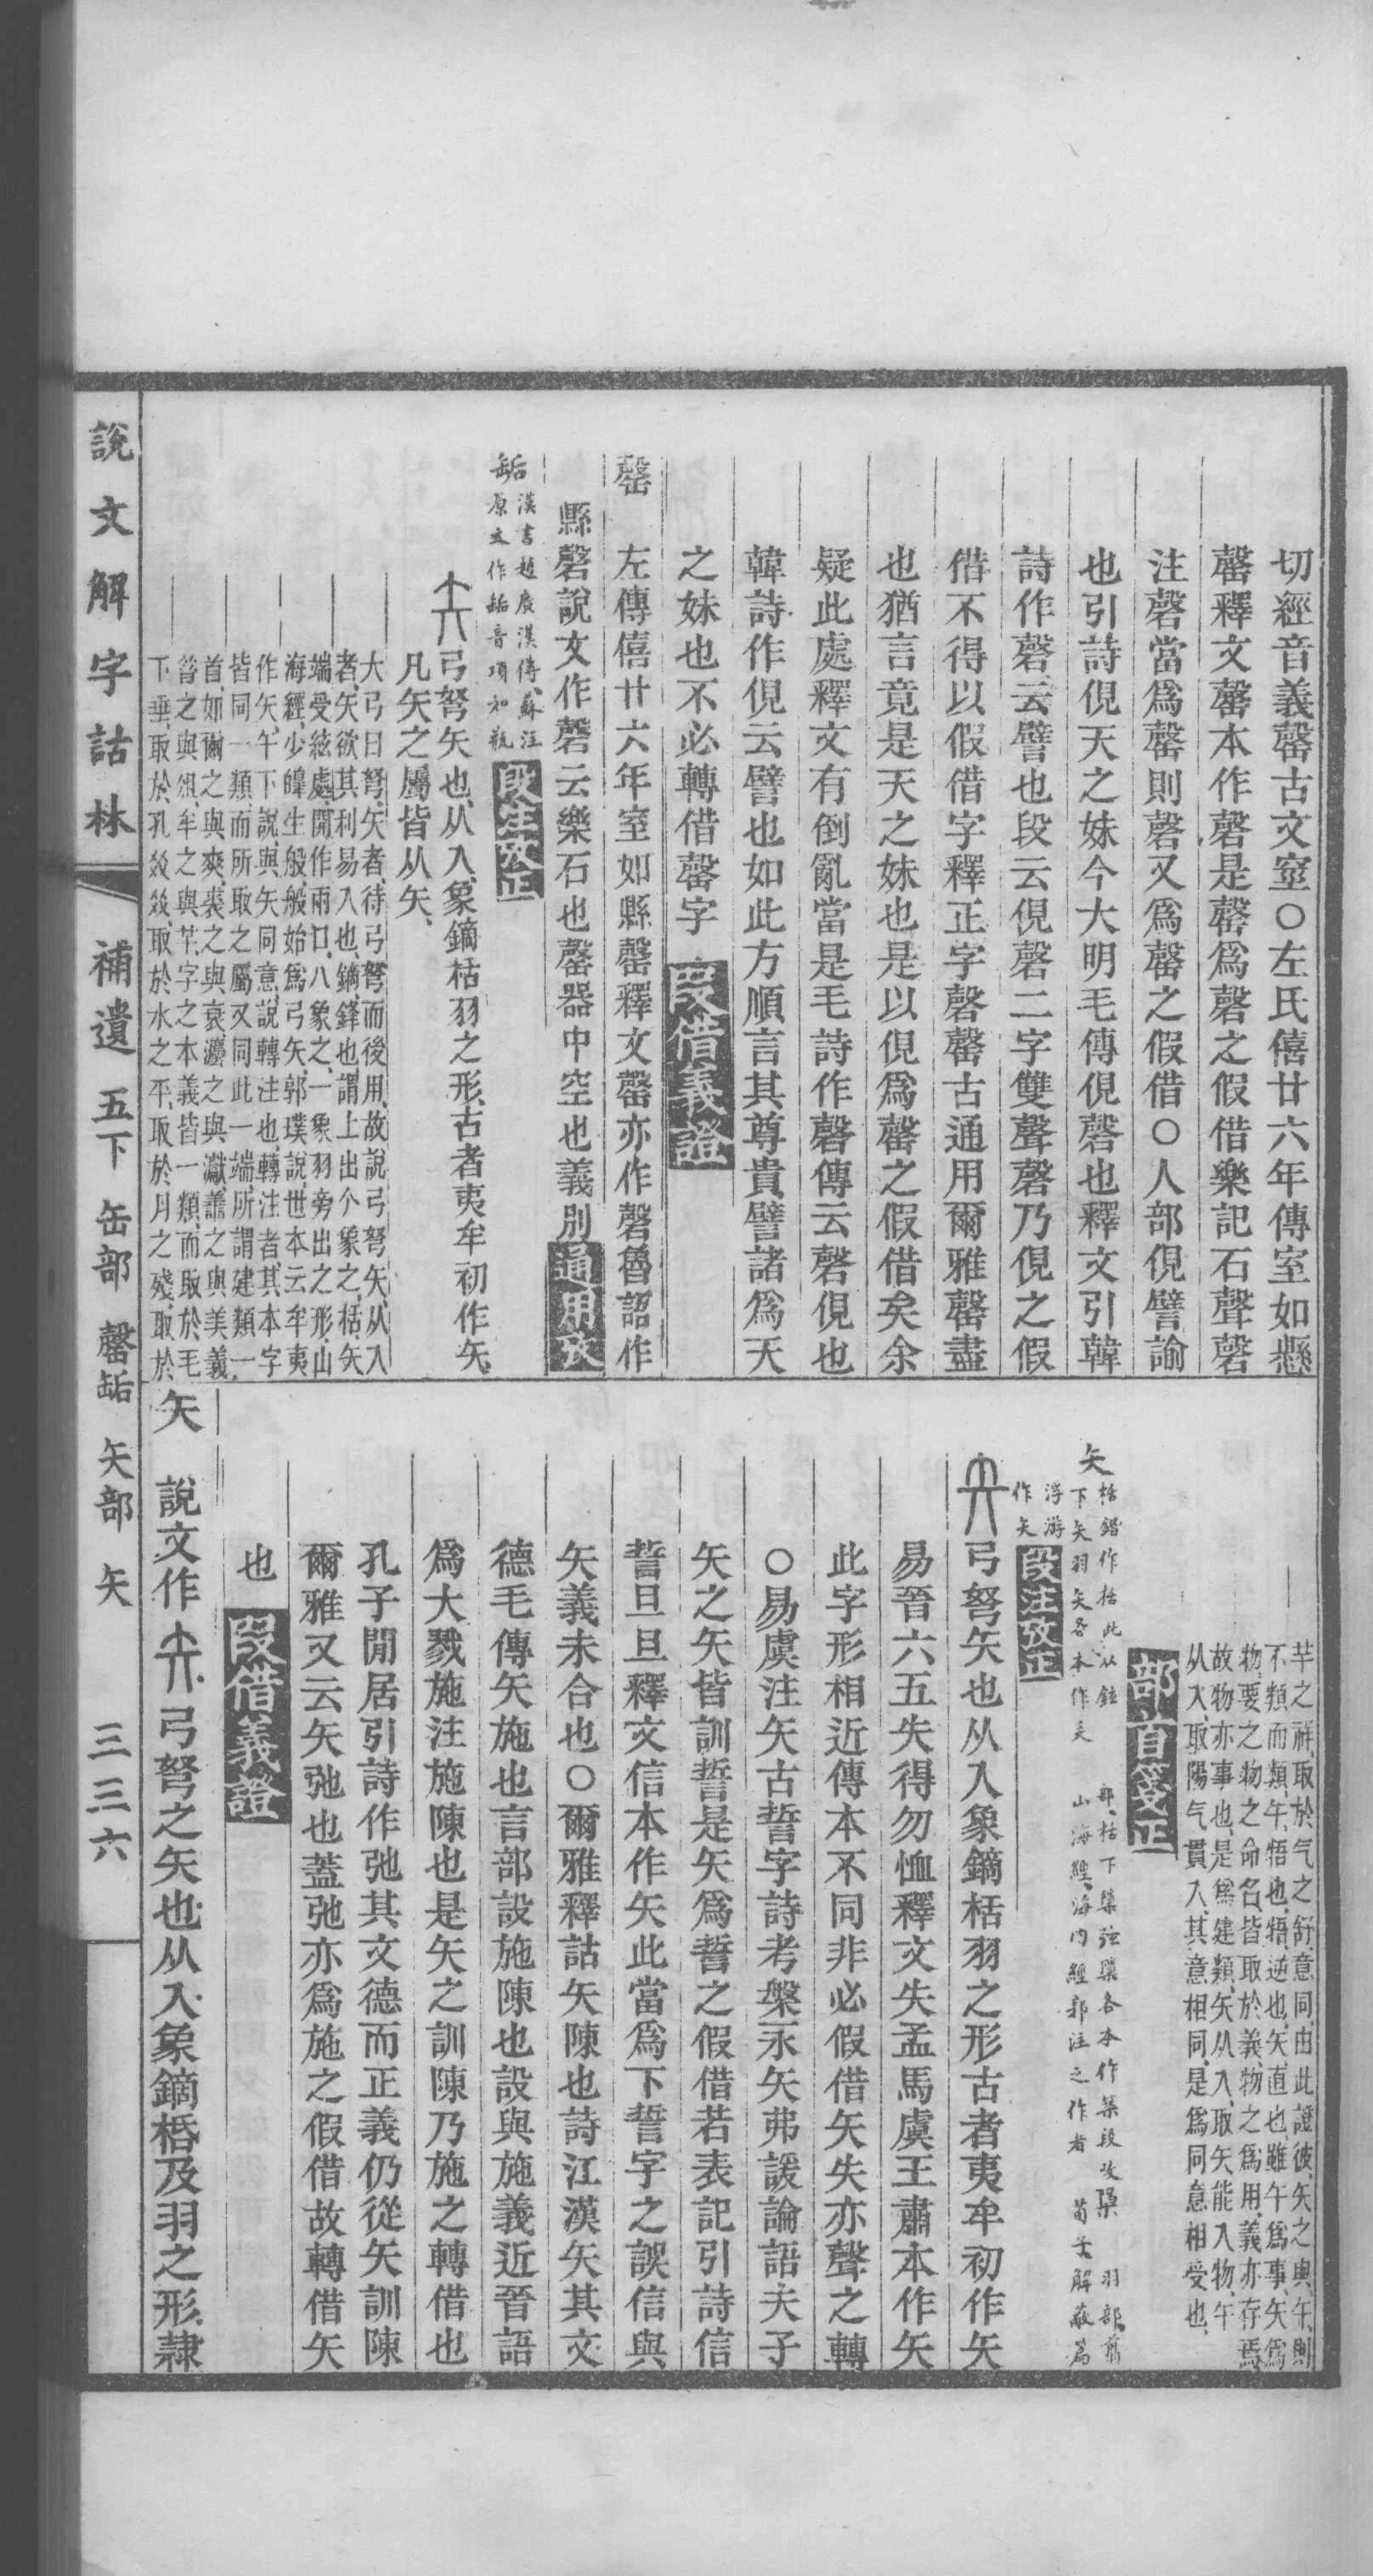 切經音義罄古文窒○左氏僖廿六年傳室如懸
罄釋文罄本作磬是罄爲磬之假借樂記石聲磬
注磬當爲罄則磬又爲罄之假借○人部俔譬諭
也引詩俔天之妹今大明毛傳俔磬也釋文引韓
詩作磬云譬也段云俔磬二字雙聲磬乃俔之假
借不得以假借字釋正字磬罄古通用爾雅罄盡
也猶言竟是天之妹也是以俔爲罄之假借矣余
疑此處釋文有倒亂當是毛詩作磬傳云磬俔也
韓詩作俔云譬也如此方順言其尊貴譬諸爲天
之妹也不必轉借罄字 段借義證
罄 左傳僖廿六年室如縣罄釋文罄亦作磬魯語作
縣磬說文作磬云樂石也罄器中空也義別 通用攷
缿 漢書趙廣漢傳蘇注
原文作缿音項如瓶 段注攷正
弓弩矢也、从入、象鏑栝羽之形、古者夷牟初作矢、
凡矢之屬皆从矢、
大弓曰弩、矢者、待弓弩而後用、故說弓弩矢、从入
者、矢欲其利易入也、鏑、鋒也、謂上出个象之、栝、矢
端受絃處、開作兩口、八象之、一象羽旁出之形、山
海經、少皞生般、般始爲弓矢、郭璞說、世本云牟夷
作矢、午下說、與矢同意、說轉注也、轉注者、其本字
皆同一類、而所取之屬又同此一端、所謂建類一
首、如爾之與爽、裘之與衰、灋之與瀛、譱之與美義、
曾之與俎、牟之與芈、字之本義皆一類、而取於毛
下垂、取於孔㸚㸚、取於水之平、取於月之殘、取於
芈之祥、取於气之舒、意同、由此證彼、矢之與午、則
不類而類、午、牾也、牾、逆也、矢直也、雖午爲事、矢爲
物、要之物之命名、皆取於義、物之爲用、義亦存焉、
故物亦事也、是爲建類、矢从入、取矢能入物、午
从入、取陽气貫入、其意相同、是爲同意相受也、
部首箋正
矢 栝鍇作栝此从鉉 部、栝下㮚弦㮚各本作築段改㮚 羽部翦
下矢羽矢各本作夫 山海經、海内經郭注之作者 荀子解蔽篇
浮游
作矢 段注攷正
弓弩矢也从入象鏑栝羽之形古者夷牟初作矢
易晉六五失得勿恤釋文失孟馬虞王肅本作矢
此字形相近傳本不同非必假借矢失亦聲之轉
○易虞注矢古誓字詩考槃永矢弗諼論語夫子
矢之矢皆訓誓是矢爲誓之假借若表記引詩信
誓旦旦釋文信本作矢此當爲下誓字之誤信與
矢義未合也○爾雅釋詁矢陳也詩江漢矢其文
德毛傳矢施也言部設施陳也設與施義近晉語
爲大戮施注施陳也是矢之訓陳乃施之轉借也
孔子閒居引詩作弛其文德而正義仍從矢訓陳
爾雅又云矢弛也蓋弛亦爲施之假借故轉借矢
也 段借義證
矢 說文作弓弩之矢也从入象鏑栝及羽之形隸
說文解字詁林 補遺 五下 缶部 罄缿 矢部 矢 三三六